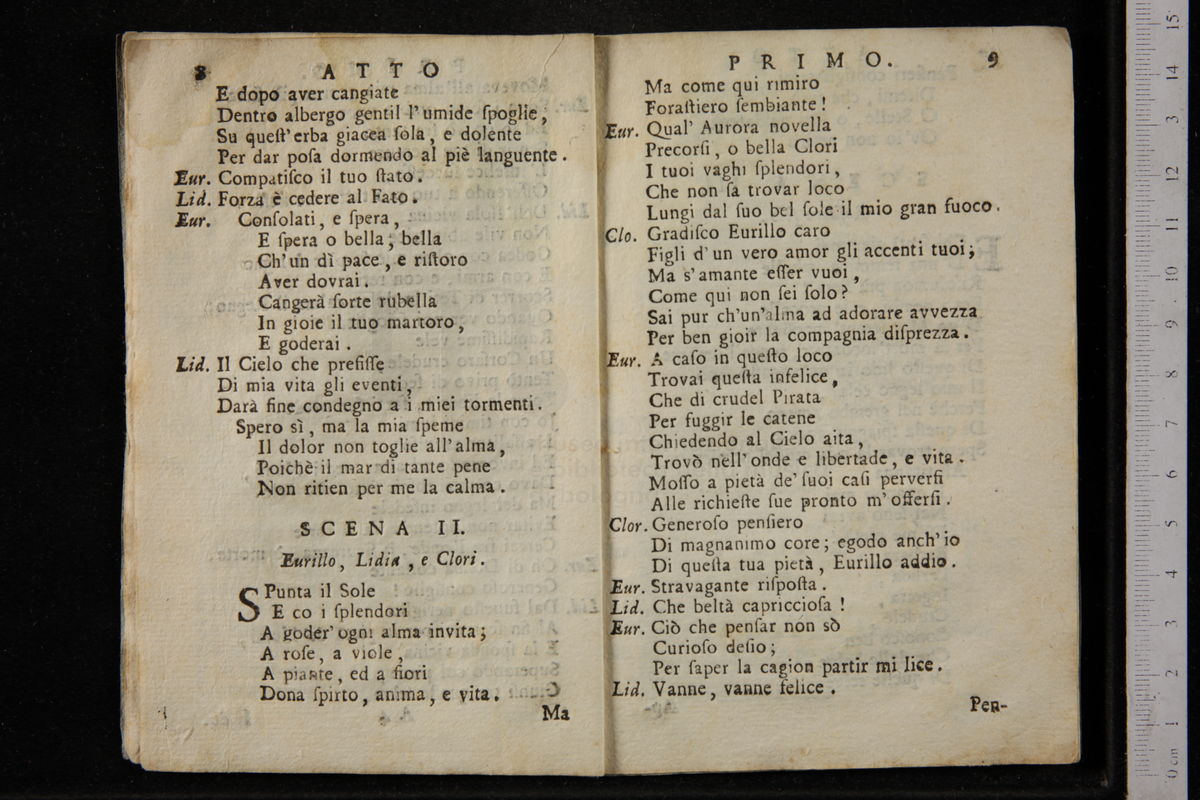 8 ATTO
E dopo aver cangiate
Dentro albergo gentil l'umide ſpoglie,
Su queſt'erba giacea ſola, e dolente
Per dar poſa dormendo al piè languente.
Eur. Compatiſco il tuo ſtato.
Lid. Forza è cedere al Fato.
Eur. Conſolati, e ſpera,
E ſpera o bella, bella
Ch'un dì pace, e riſtoro
Aver dovrai.
Cangerà ſorte rubella
In gioie il tuo martoro,
E goderai.
Lid. Il Cielo che prefiſſe
Di mia vita gli eventi,
Darà fine condegno a i miei tormenti.
Spero sì, ma la mia ſpeme
Il dolor non toglie all'alma,
Poichè il mar di tante pene
Non ritien per me la calma.
SCENA II.
Eurillo, Lidia, e Clori.
SPunta il Sole
E co i ſplendori
A goder'ogni alma invita;
A roſe, a viole,
A piante, ed a fiori
Dona ſpirto, anima, e vita.
Ma
PRIMO. 9
Ma come qui rimiro
Foraſtiero ſembiante!
Eur. Qual' Aurora novella
Precorſi, o bella Clori
I tuoi vaghi ſplendori,
Che non ſa trovar loco
Lungi dal ſuo bel ſole il mio gran fuoco.
Clo. Gradiſco Eurillo caro
Figli d'un vero amor gli accenti tuoi;
Ma s'amante eſſer vuoi,
Come qui non ſei ſolo?
Sai pur ch'un'alma ad adorare avvezza
Per ben gioir la compagnia diſprezza.
Eur. A caſo in queſto loco
Trovai queſta infelice,
Che di crudel Pirata
Per fuggir le catene
Chiedendo al Cielo aita,
Trovò nell'onde e libertade, e vita.
Moſſo a pietà de' ſuoi caſi perverſi
Alle richieſte ſue pronto m'offerſi.
Clor. Generoſo penſiero
Di magnanimo core; egodo anch'io
Di queſta tua pietà, Eurillo addio.
Eur. Stravagante riſpoſta.
Lid. Che beltà capriccioſa!
Eur. Ciò che penſar non sò
Curioſo deſio;
Per ſaper la cagion partir mi lice.
Lid. Vanne, vanne felice.
Pen-
0 cm 1 2 3 4 5 6 7 8 9 10 11 12 13 14 15